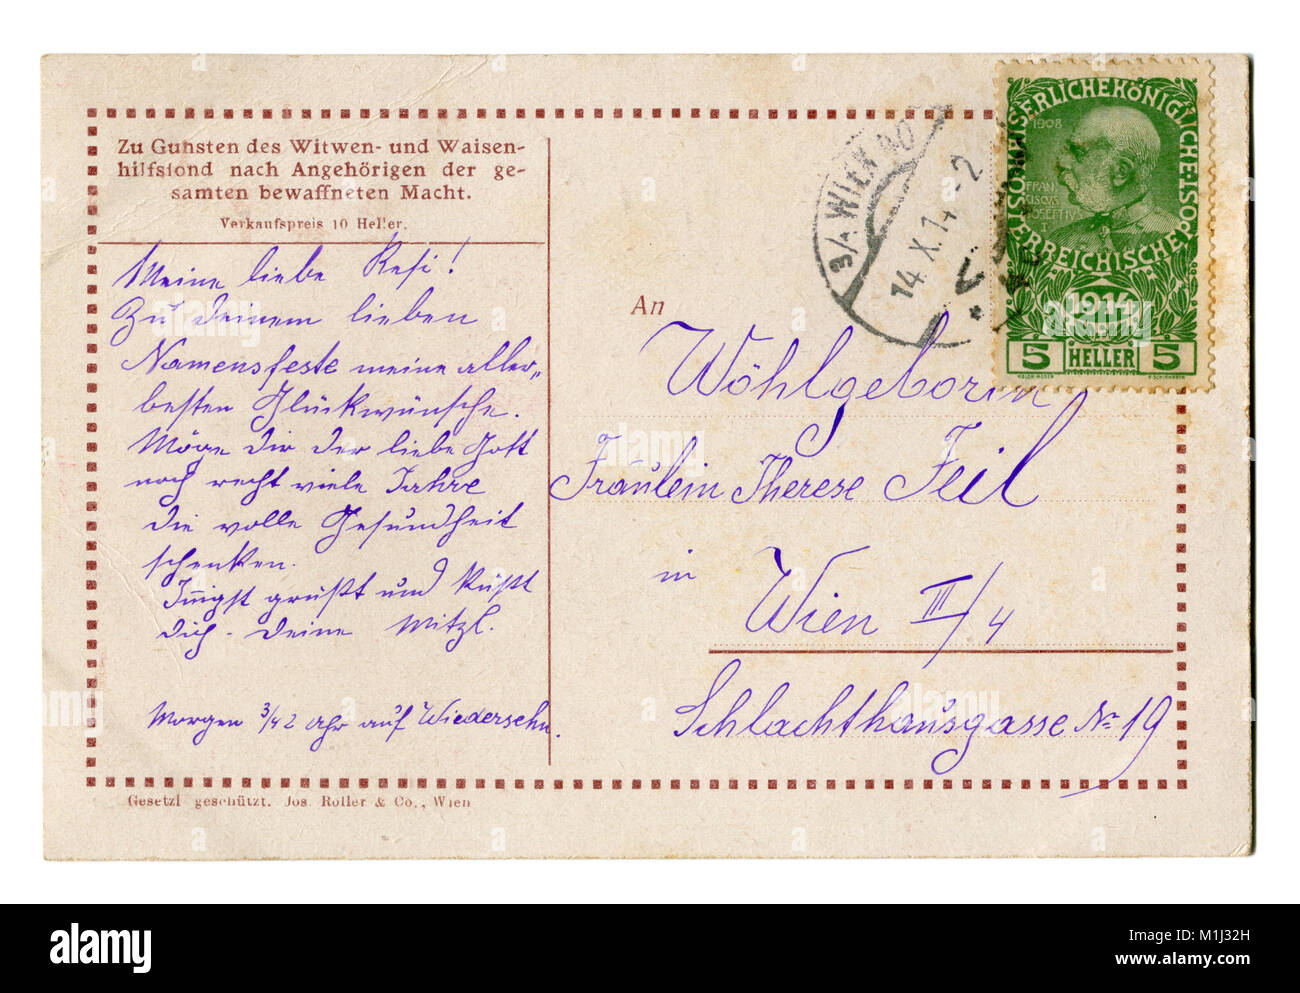 Zu Gunsten des Witwen- und Waisen-
hilfsfond nach Angehörigen der ge-
samten bewaffneten Macht.
Verkaufspreis 10 Heller.
Meine liebe Resi!
Zu Deinem lieben
Namensfeste meine aller„
besten Glückwünsche.
Möge Dir der liebe Gott
noch recht viele Jahre
die volle Gesundheit
schenken.
Innigst grüßt und küßt
Dich. Deine Mitzl.
Morgen 3/4 2 Uhr auf Wiedersehn.
Gesetzl geschützt. Jos. Roller & Co., Wien
3/1 WIEN
14. X. 14 - 2
V
KAISERLICHEKÖNIGLICHEÖSTERREICHISCHEPOST
1908
FRAN
CISCVS
IOSEPHVS
I
1914
5 HELLER 5
An
Wohlgeborin
Fräulein Therese Feil
in Wien III/4
Schlachthausgasse No 19
alamy
M1J32H
www.alamy.com